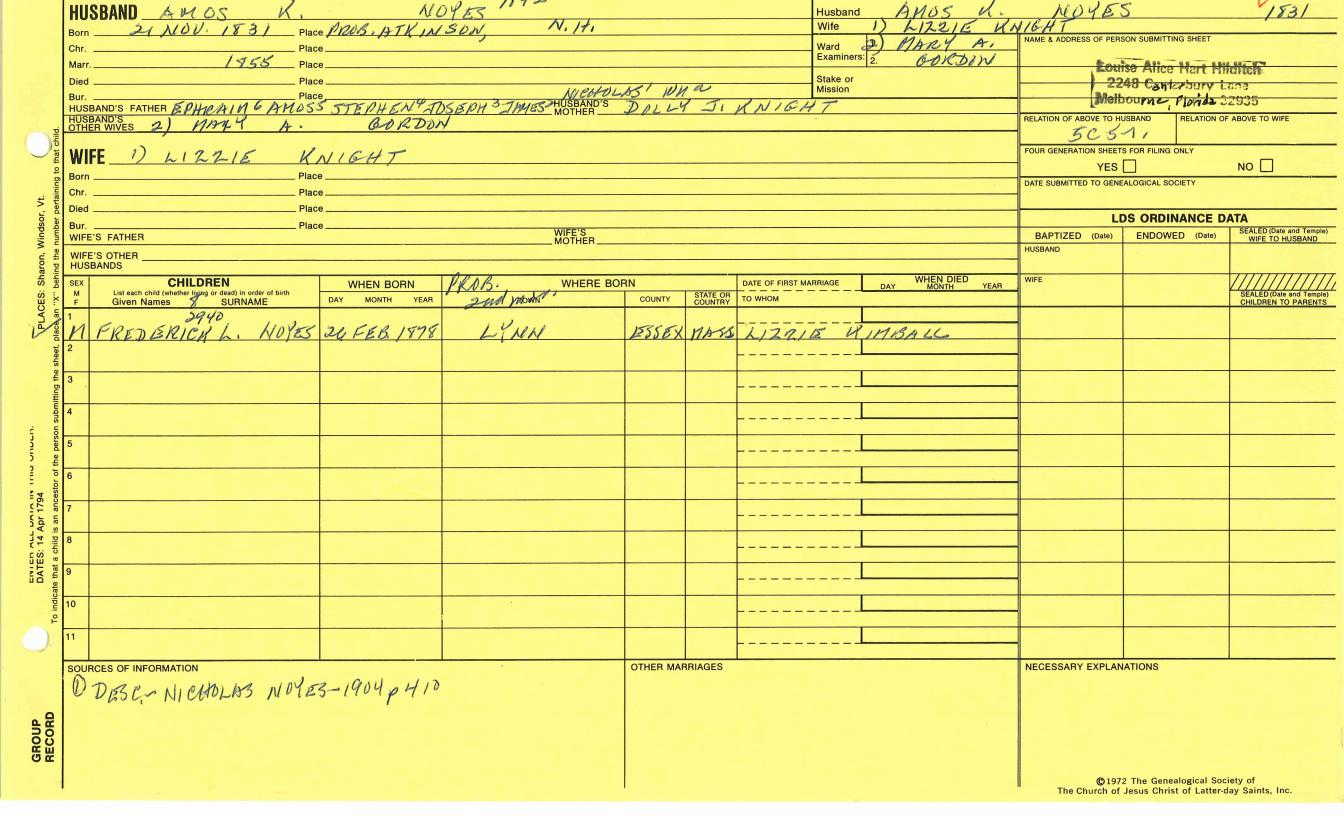 HUSBAND AMOS K. NOYES
Born 21 NOV. 1831 Place PROB. ATKINSON, N.H.
Chr. Place
Marr. 1855 Place
Died Place
Bur. Place
NICHOLAS¹
HUSBAND'S FATHER EPHRAIM⁶ AMOS⁵ STEPHEN⁴ JOSEPH³ JAMES² HUSBAND'S MOTHER DOLLY J. KNIGHT
HUSBAND'S OTHER WIVES 2) MARY A. GORDON
WIFE 1) LIZZIE KNIGHT
Born Place
Chr. Place
Died Place
Bur. Place
WIFE'S FATHER WIFE'S MOTHER
WIFE'S OTHER HUSBANDS
Husband AMOS K. NOYES 1831
Wife 1) LIZZIE KNIGHT
Ward Examiners: 2) MARY A.
2. GORDON
Stake or Mission
NAME & ADDRESS OF PERSON SUBMITTING SHEET
Louise Alice Hart Hilditch
2248 Canterbury Lane
Melbourne, Florida 32935
RELATION OF ABOVE TO HUSBAND RELATION OF ABOVE TO WIFE
FOUR GENERATION SHEETS FOR FILING ONLY
YES NO
DATE SUBMITTED TO GENEALOGICAL SOCIETY
LDS ORDINANCE DATA
BAPTIZED (Date) ENDOWED (Date) SEALED (Date and Temple) WIFE TO HUSBAND
HUSBAND
WIFE
SEALED (Date and Temple) CHILDREN TO PARENTS
SEX M F
CHILDREN
List each child (whether living or dead) in order of birth
Given Names 8 SURNAME
WHEN BORN
DAY MONTH YEAR
PROB. WHERE BORN
COUNTY STATE OR COUNTRY
DATE OF FIRST MARRIAGE
TO WHOM
WHEN DIED
DAY MONTH YEAR
2940
1 M FREDERICK L. NOYES 26 FEB 1878 LYNN ESSEX MASS LIZZIE KIMBALL
2
3
4
5
6
7
8
9
10
11
SOURCES OF INFORMATION
① DESC. NICHOLAS NOYES-1904 p 410
OTHER MARRIAGES
NECESSARY EXPLANATIONS
©1972 The Genealogical Society of
The Church of Jesus Christ of Latter-day Saints, Inc.
PLACES: Sharon, Windsor, Vt.
ENTER ALL DATA IN THIS ORDER:
DATES: 14 Apr 1794
To indicate that a child is an ancestor of the person submitting the sheet, place an "X" behind the number pertaining to that child.
GROUP
RECORD